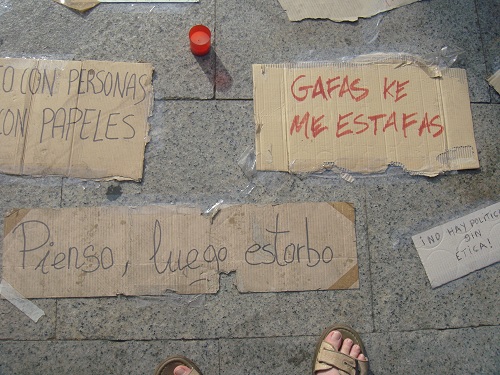 O CON PERSONAS
CON PAPELES
GAFAS KE
ME ESTAFAS
Pienso, luego estorbo
¡NO HAY POLITIC
SIN
ETICA!